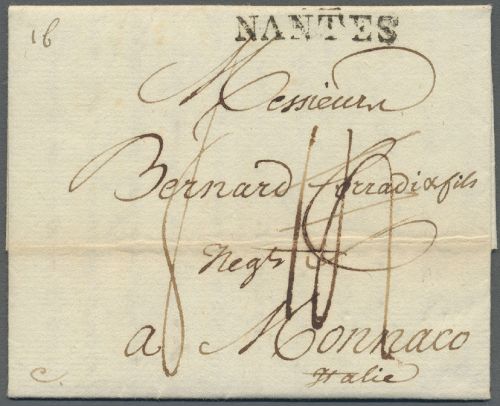 16
NANTES
Messieurs
Bernard Corradi & fils
Negts
a Monnaco
Italie
C.